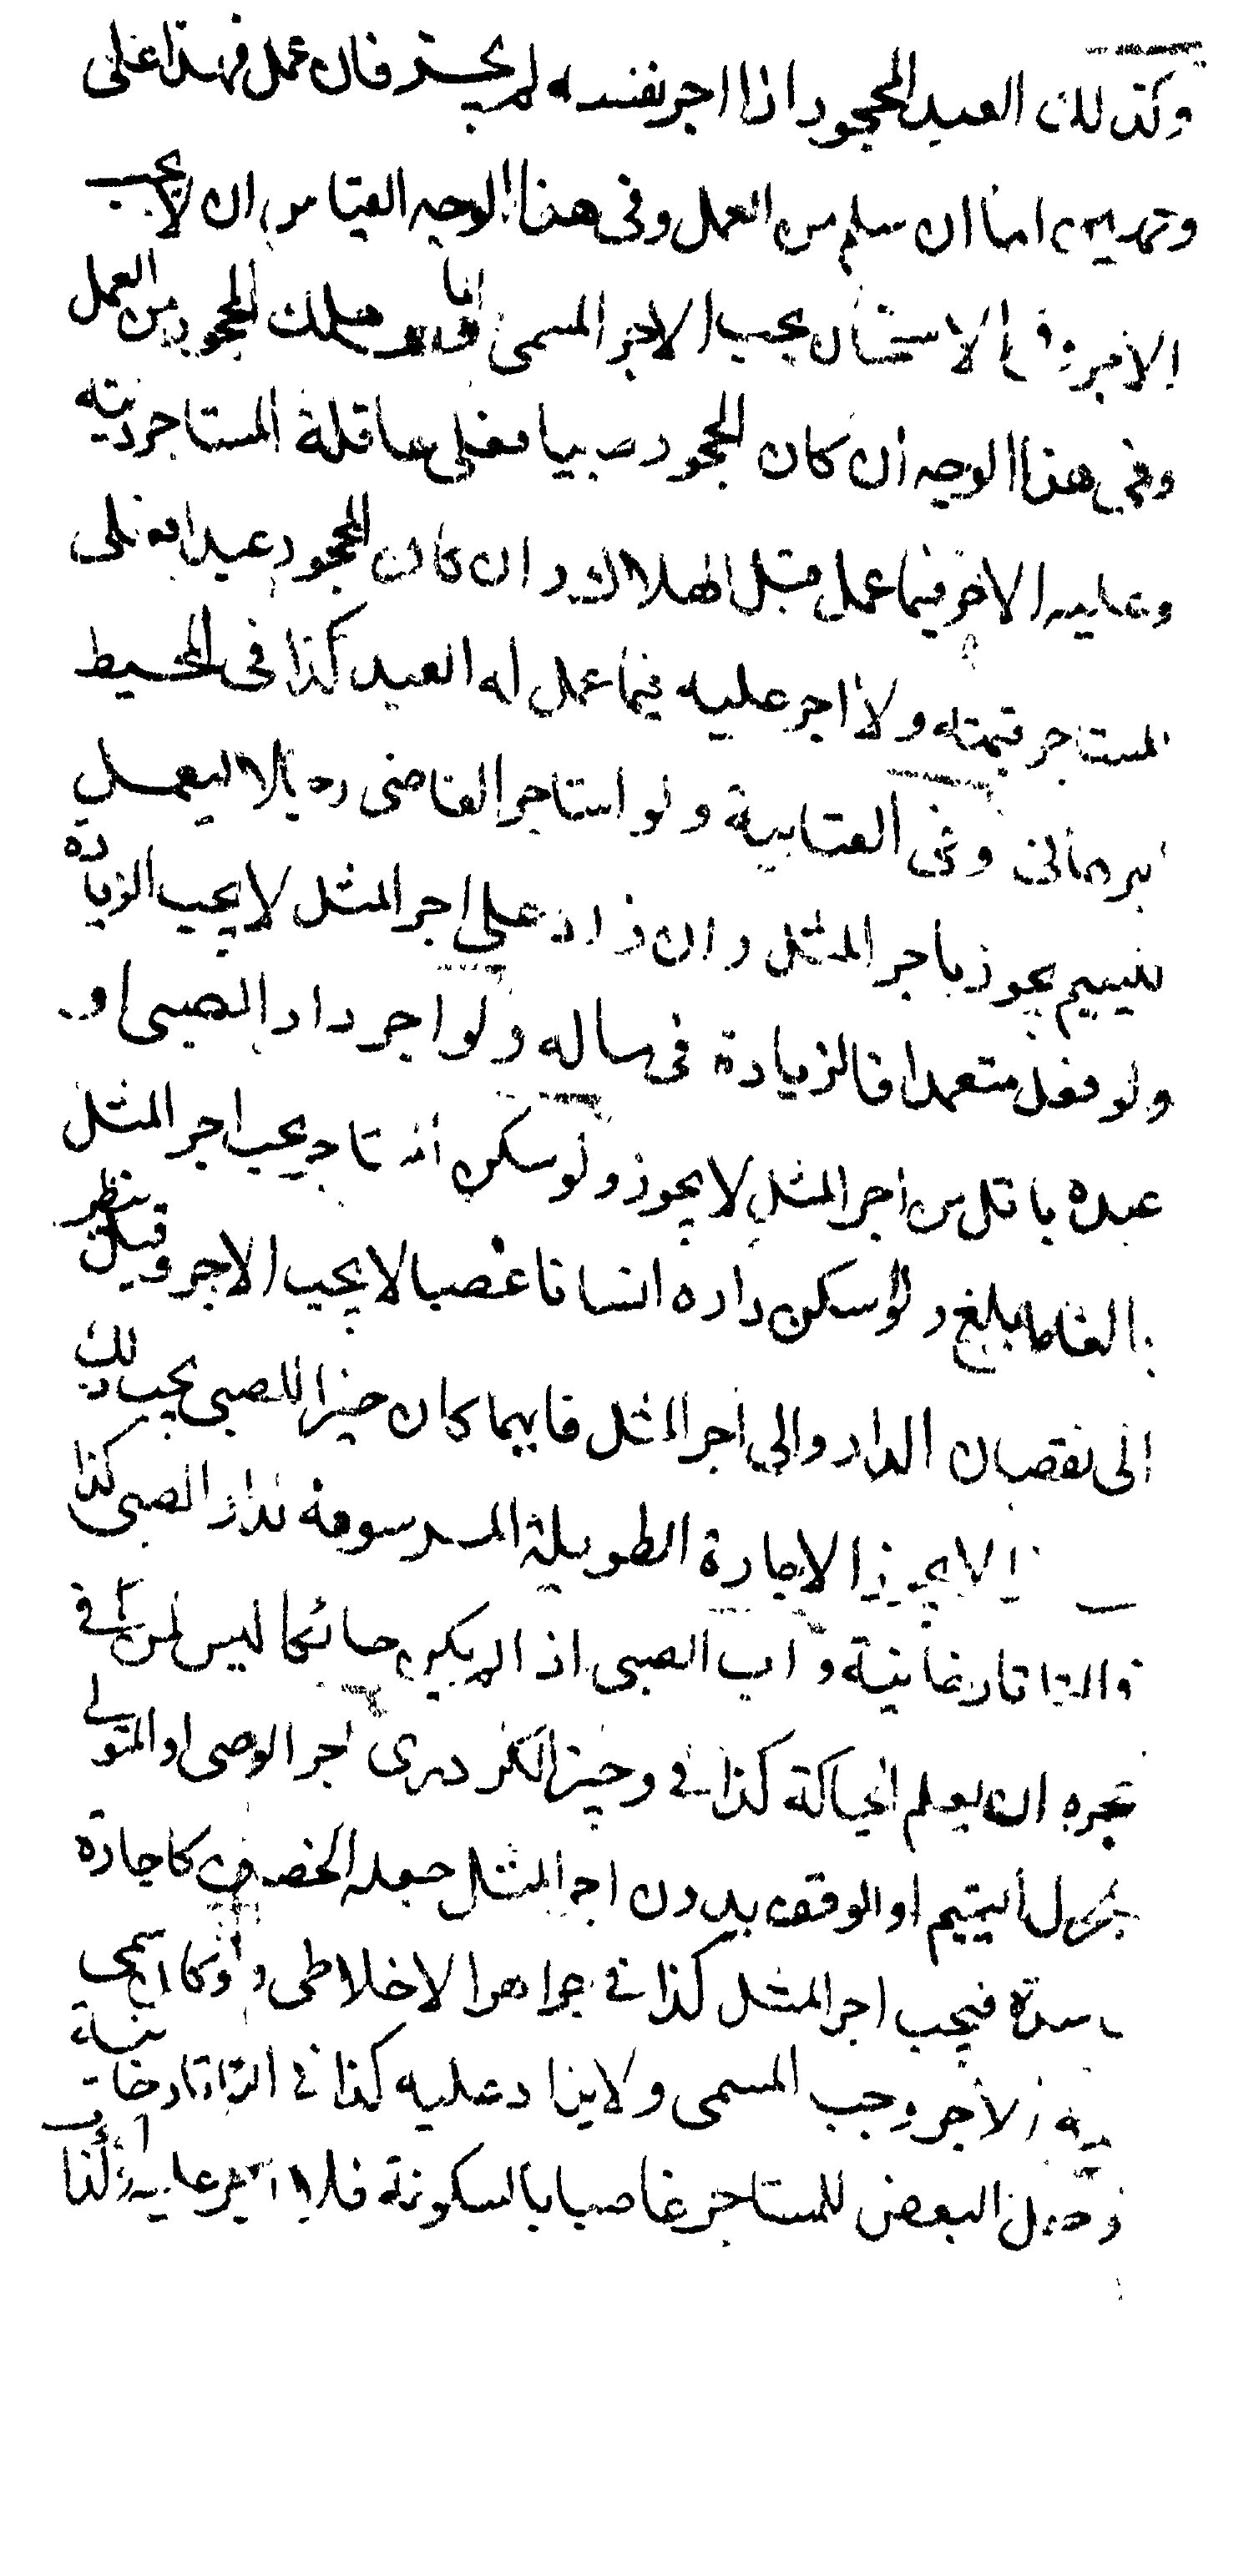 وكذلك العبد المحجور اذا اجر نفسه لم يجز فان عمل فهذا على
وجهين اما ان سلم من العمل وفى هذا الوجه القياس ان لا يجب
الاجر وفى الاستحسان يجب الاجر المسمى هلك المحجور من العمل
وفى هذا الوجه ان كان المحجور صبيا فعلى عاقلة المستاجر ديته
وعليه الاجر فيما عمل قبل الهلاك وان كان المحجور عبدا فعلى
المستاجر قيمته ولا اجر عليه فيما عمل له العبد كذا فى المحيط
البرهانى وفى العتابية ولو استاجر القاضى رجلا ليعمل
لليتيم يجوز باجر المثل وان زاد على اجر المثل لا يجب الزيادة
ولو فعل متعمدا فالزيادة فى ماله ولو اجر دار الصبى او
عبده باقل من اجر المثل لا يجوز ولو سكن يجب اجر المثل
بالغا ما بلغ ولو سكن داره انسانا غصبا لا يجب الاجر وقيل ينظر
الى نقصان الدار والى اجر المثل فايهما كان خيرا للصبى يجب ذلك
لا يجوز الاجارة الطويلة المرسومة لدار الصبى كذا
فى التاتارخانية واب الصبى اذا لم يكن حائكا ليس لمن فى
حجره ان يعلم الحياكة كذا فى وجيز الكردرى اجر الوصى او المتولى
منزل اليتيم او الوقف بدون اجر المثل جعله الخصاف كاجارة
فاسدة فيجب اجر المثل كذا فى جواهر الاخلاطى ولو كان سمى
فيه الاجر وجب المسمى ولا يزاد عليه كذا فى التاتارخانية
وجعل البعض للمستاجر غاصبا بالسكونة فلا اجر عليه